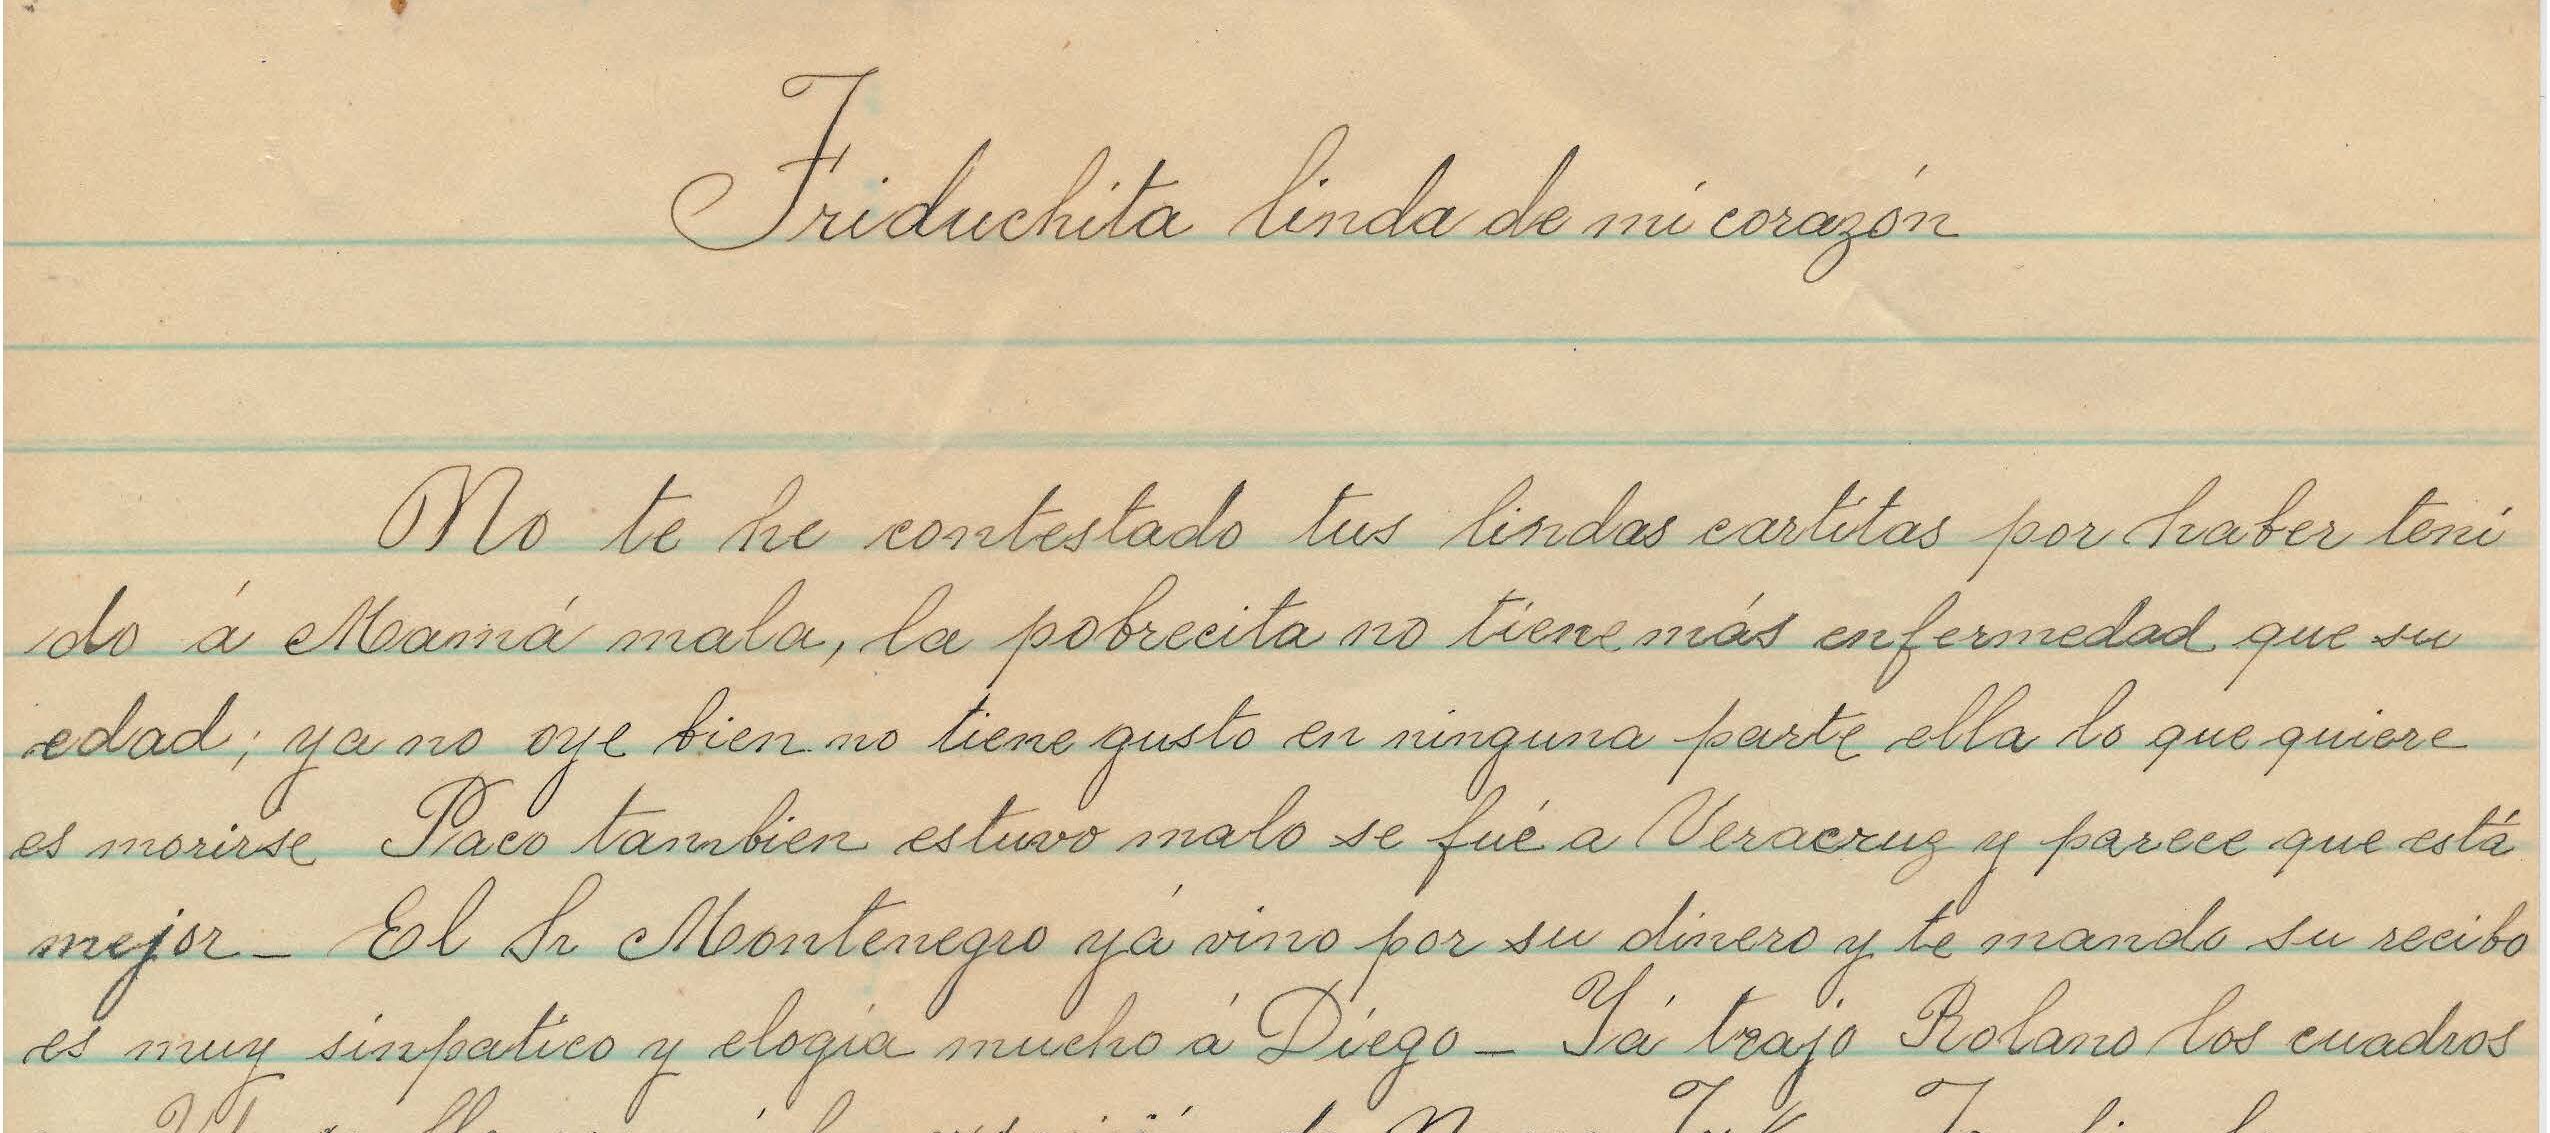 Friduchita linda de mi corazón
No te he contestado tus lindas cartitas por haber teni
do á Mamá mala, la pobrecita no tiene más enfermedad que su
edad; ya no oye bien no tiene gusto en ninguna parte ella lo que quiere
es morirse Paco tambien estuvo malo se fué a Veracruz y parece que está
mejor_ El Sr Montenegro yá vino por su dinero y te mando su recibo
es muy sinpatico y elogia mucho á Diego_ Yá trajo Rolano los cuadros